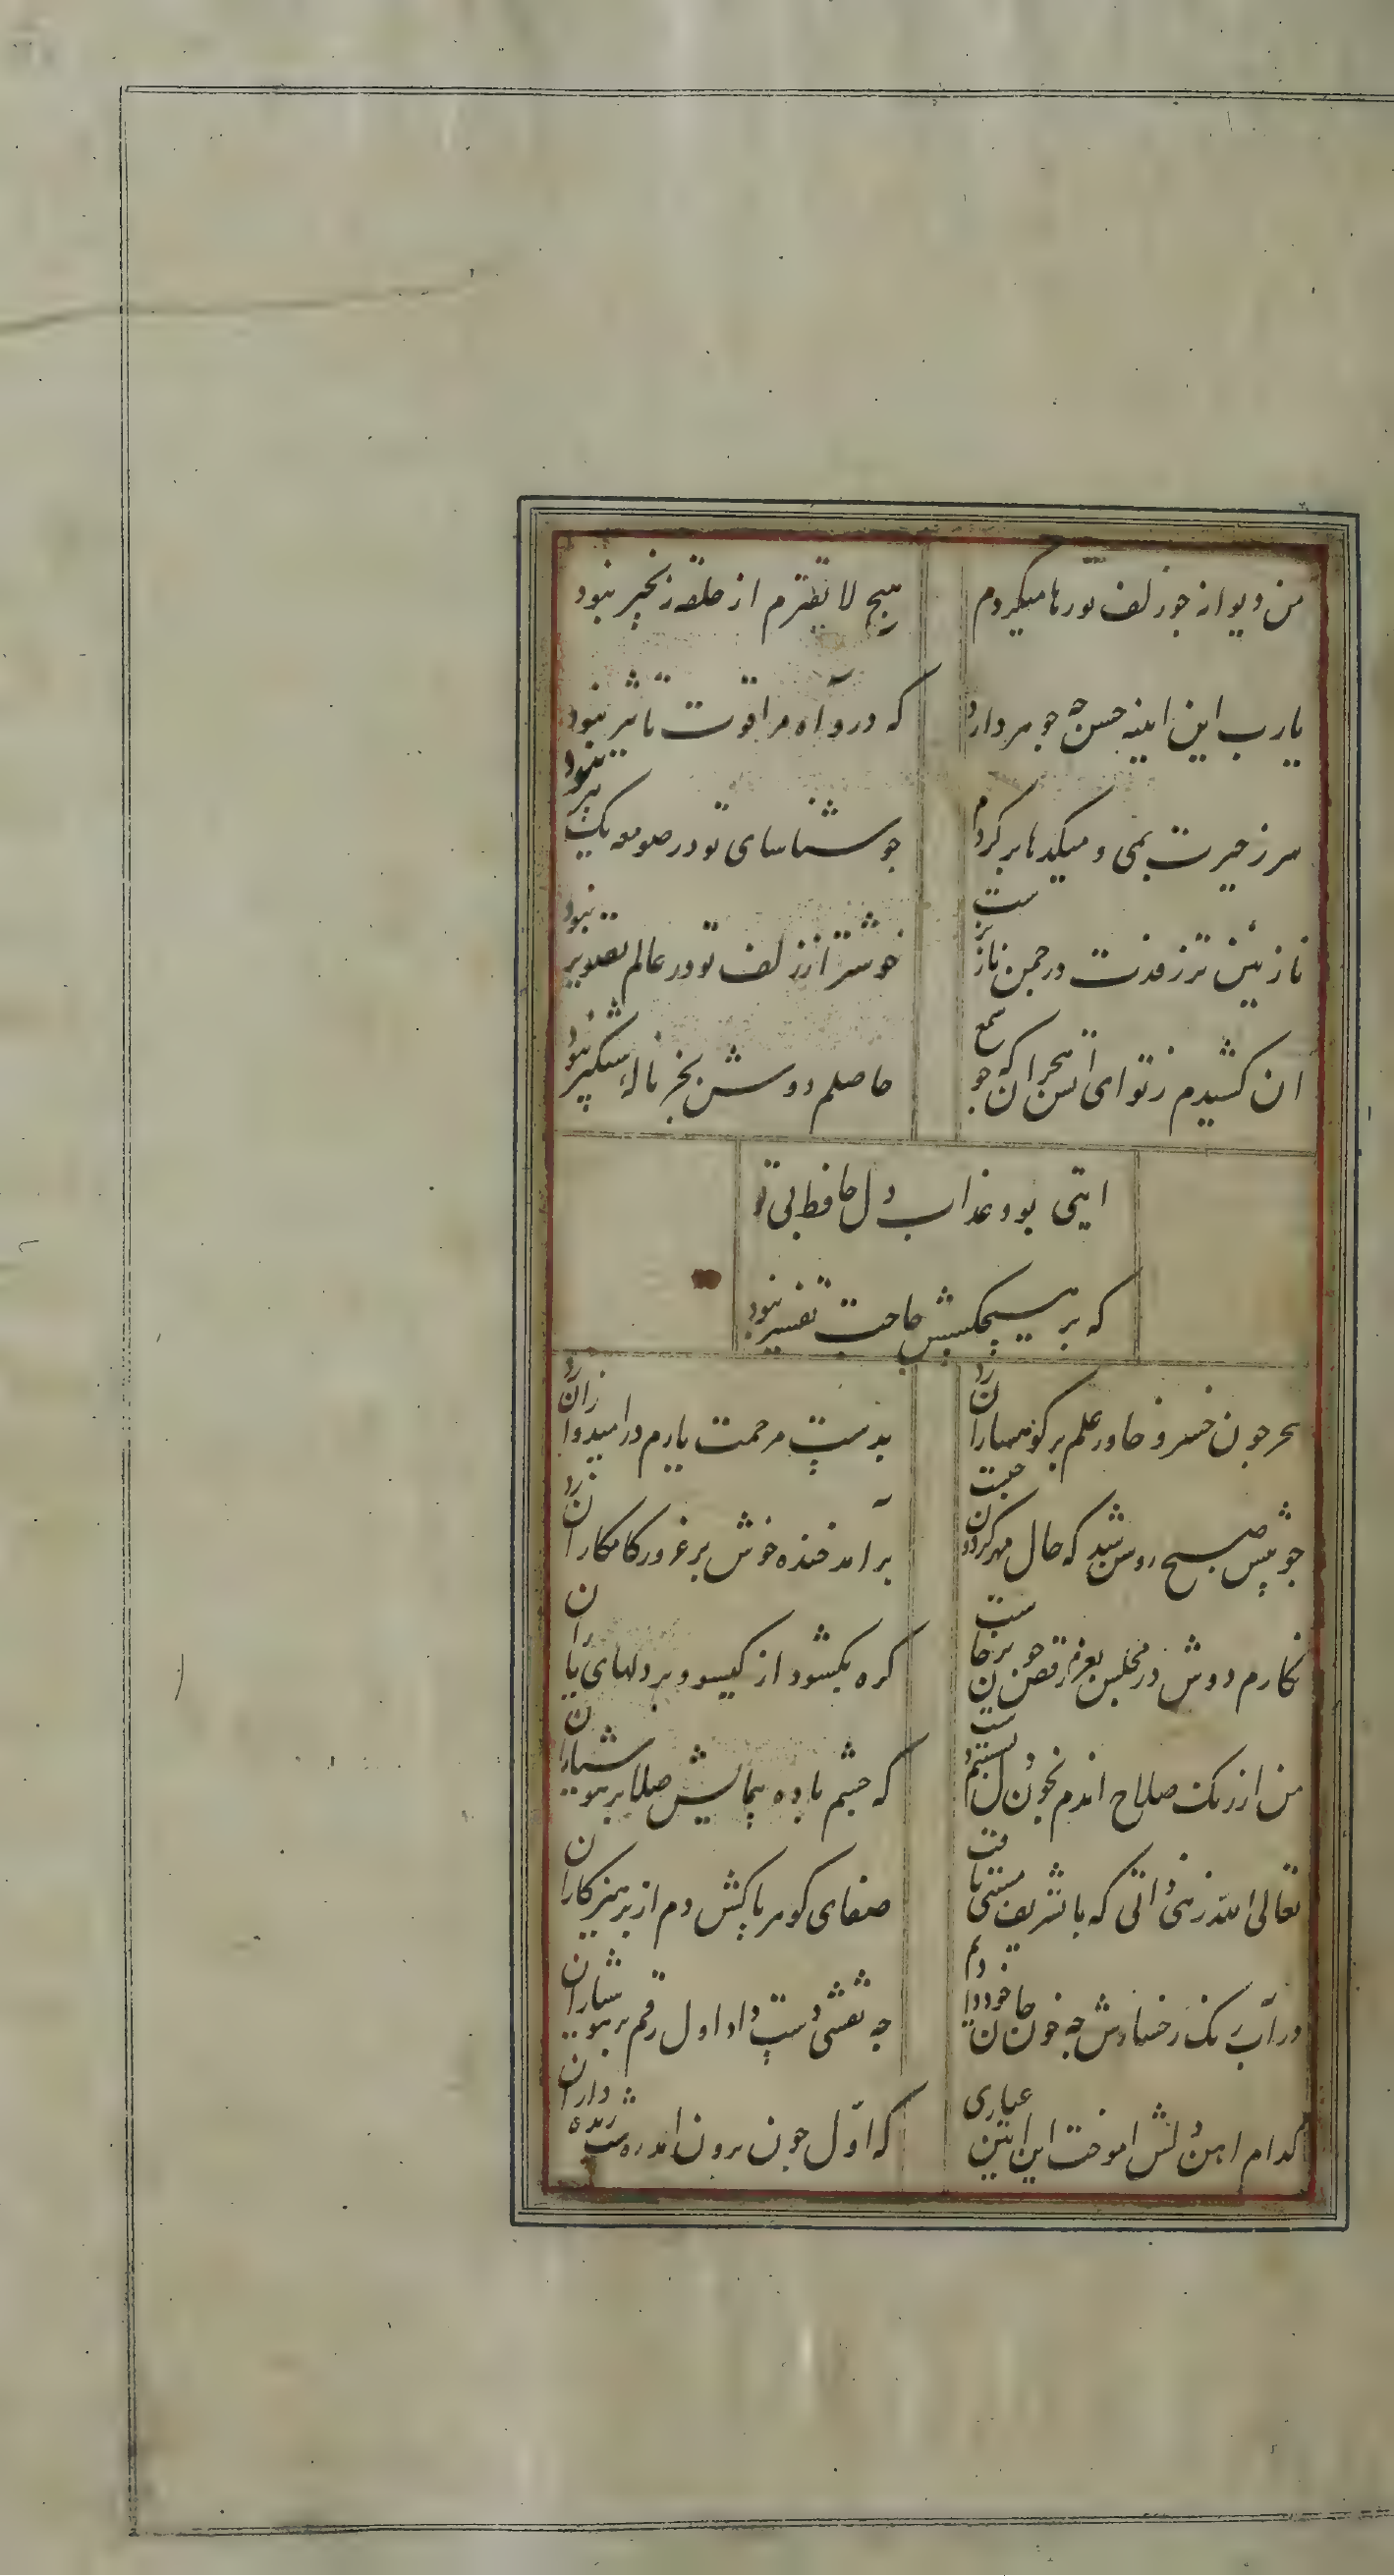 من دیوانه چو زلف تو رها میکردم
هیچ لایقترم از حلقه زنجیر نبود
یارب این اینه حسن چه جوهر دارد
که درو آه مرا قوت تاثیر نبود
سر ز حیرت بمی و میکدها بر کردم
چو شناسای تو در صومعه یک پیر نبود
نازنین تر ز قدت در چمن ناز نرست
خوشتر از زلف تو در عالم تصویر نبود
ان کشیدم ز تو ای اتش هجران که چو شمع
حاصلم دوش بجز ناله شبگیر نبود
ایتی بود عذاب دل حافظ بی تو
که بر هیچکسش حاجت تفسیر نبود
سحر چون خسرو خاور علم بر کوهساران زد
بدست مرحمت یارم در امیدواران زد
چو پیش صبح روشن شد که حال مهر گردون چیست
برآمد خنده خوش بر غرور کامکاران زد
نکارم دوش در مجلس بعزم رقص چون برخاست
کره بکشود از کیسو و بر دلهای یاران
من از رنک صلاح اندم بخون دل بشستم دست
که چشم باده پیمایش صلا بر هوشیاران
تعالی الله زهی ذاتی که با تشریف مستی یافت
صفای کوهر پاکش دم از پرهیزکاران
در آب رنک رخسارش چه خون خوردیم جان دادیم
چه نقشی دست داد اول رقم بر هوشیاران
کدام اهن دلش اموخت این ایین عیاری
که اول چون برون امد ره شب زنده داران